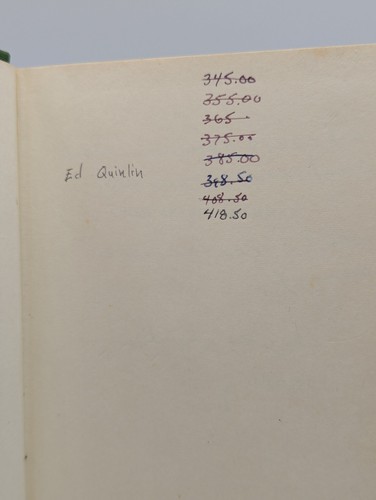 345.00
355.00
365-
375.00
385.00
Ed Quinlin
398.50
408.50
418.50